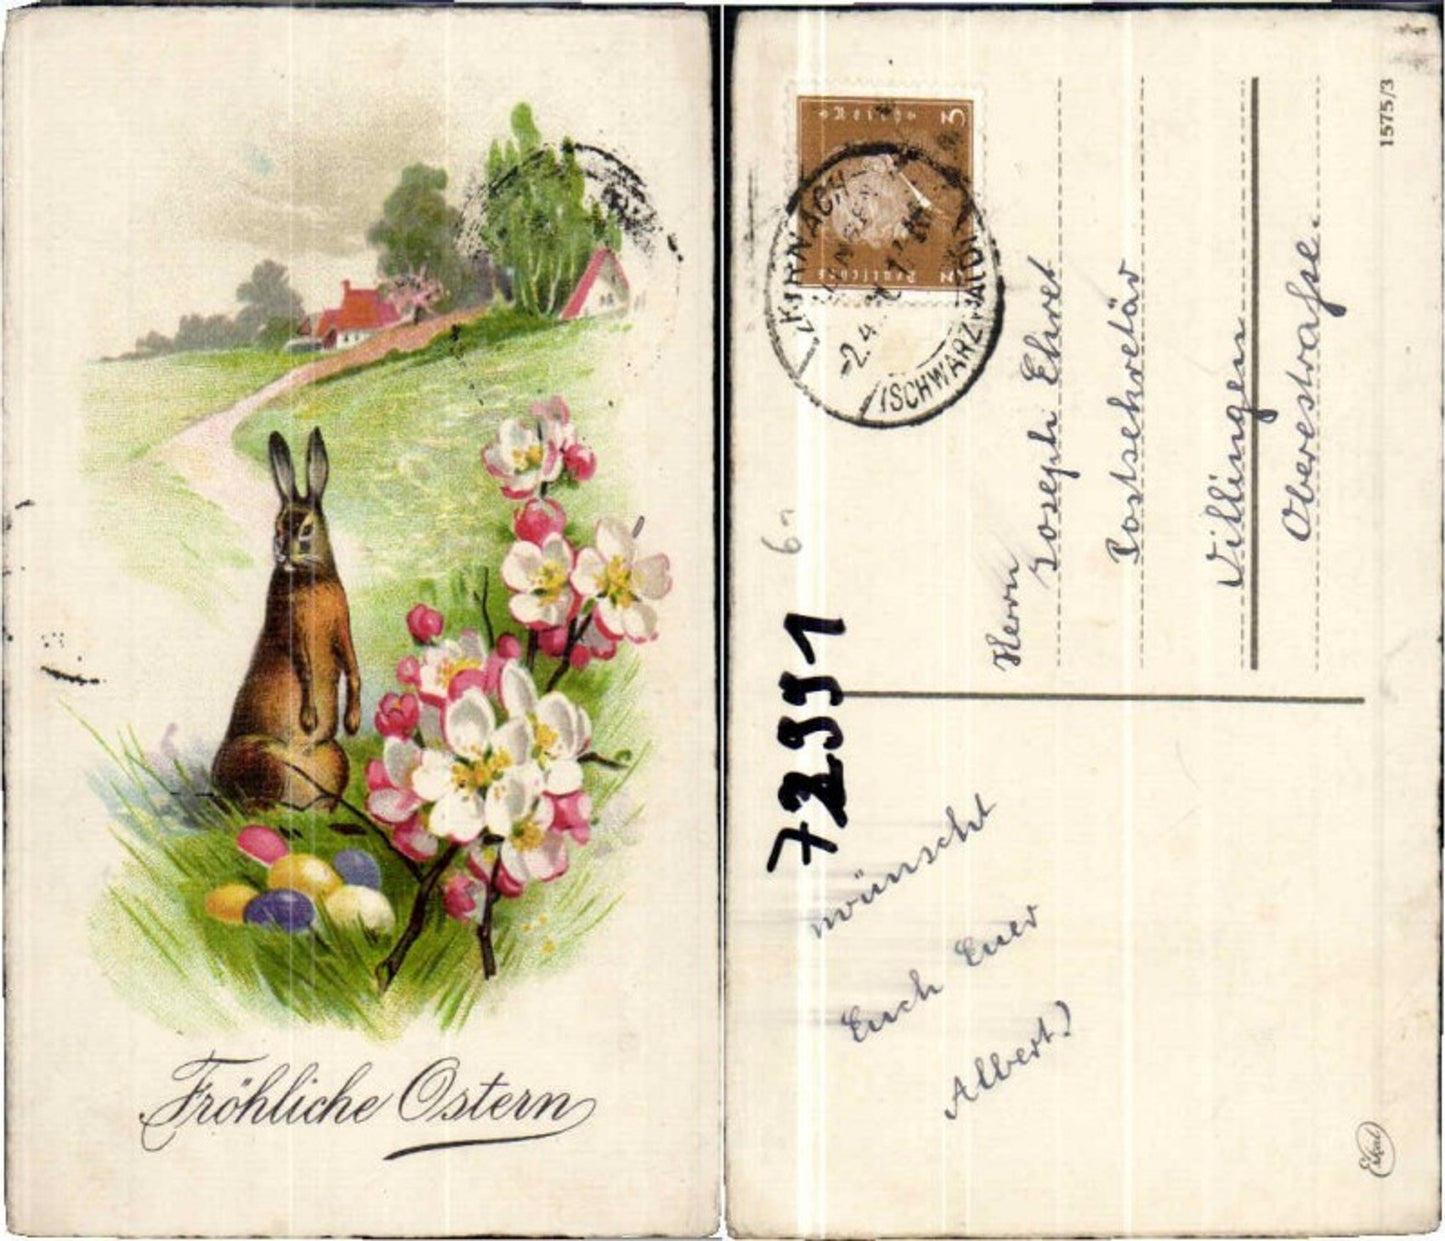 Fröhliche Ostern
1575/3
3
KIRNACH-
-2.4.
(SCHWARZWALD)
Herrn
Joseph Ehret
Postsekretär
Villingen
Oberestrasse.
72991
wünscht
Euch Euer
Albert.
Erkal